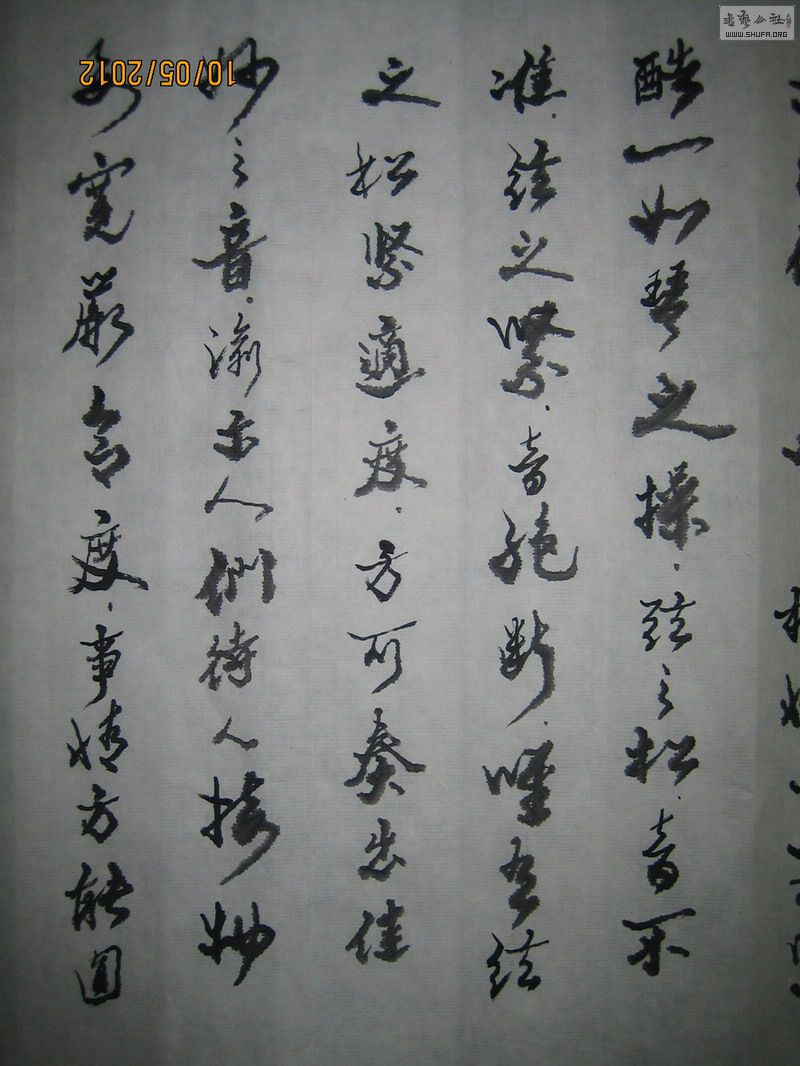 酷一如琴之操，弦之松，音不
准，弦之紧，音绝断，唯有弦
之松紧適度，方可奏出佳
妙之音，渝示人們待人接物
要寬嚴合度，事情方能圆
10/05/2012
書藝公社
WWW.SHUFA.ORG